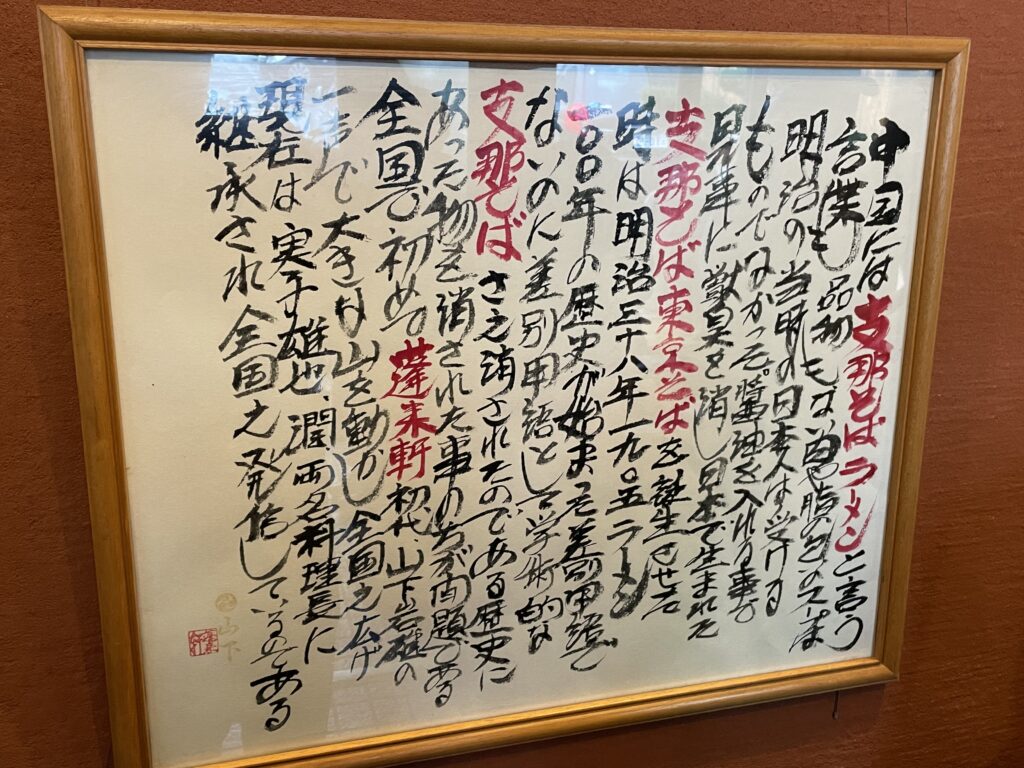 中国には支那そばラーメンと言う
言葉も品物もない
明治の当時の日本人は受ける
ものでなかった。醤油を入れる事で
見事に獣臭を消し日本で生まれた
支那そば東京そばを誕生させた
時は明治三十八年一九〇五ラーメン
一〇〇年の歴史が始まった差別用語で
ないのに差別用語として学術的な
支那そばさえ消されたのである歴史に
あった物を消された事のちが問題である
全国で初めて蓬来軒初代、山下岩雄の
一言で大きな山を動かし全国え広げ
現在は実子雄也、潤両名料理長に
継承され全国え発信しているのである
山下